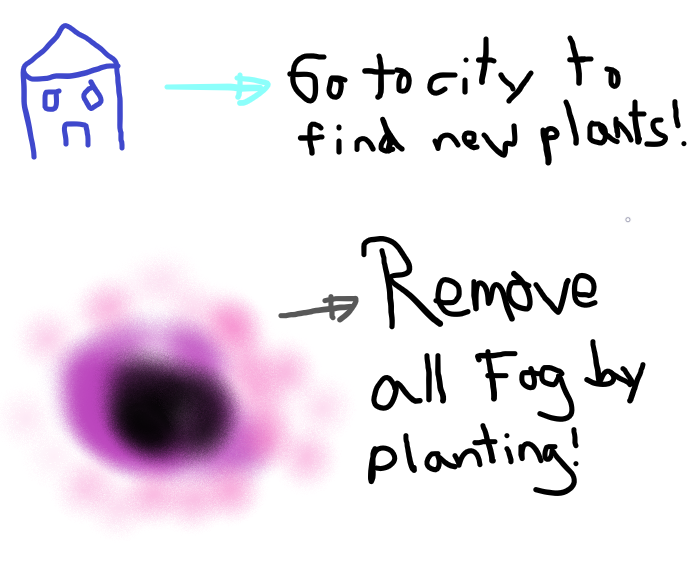 Go to city to
find new plants!
Remove
all Fog by
planting!